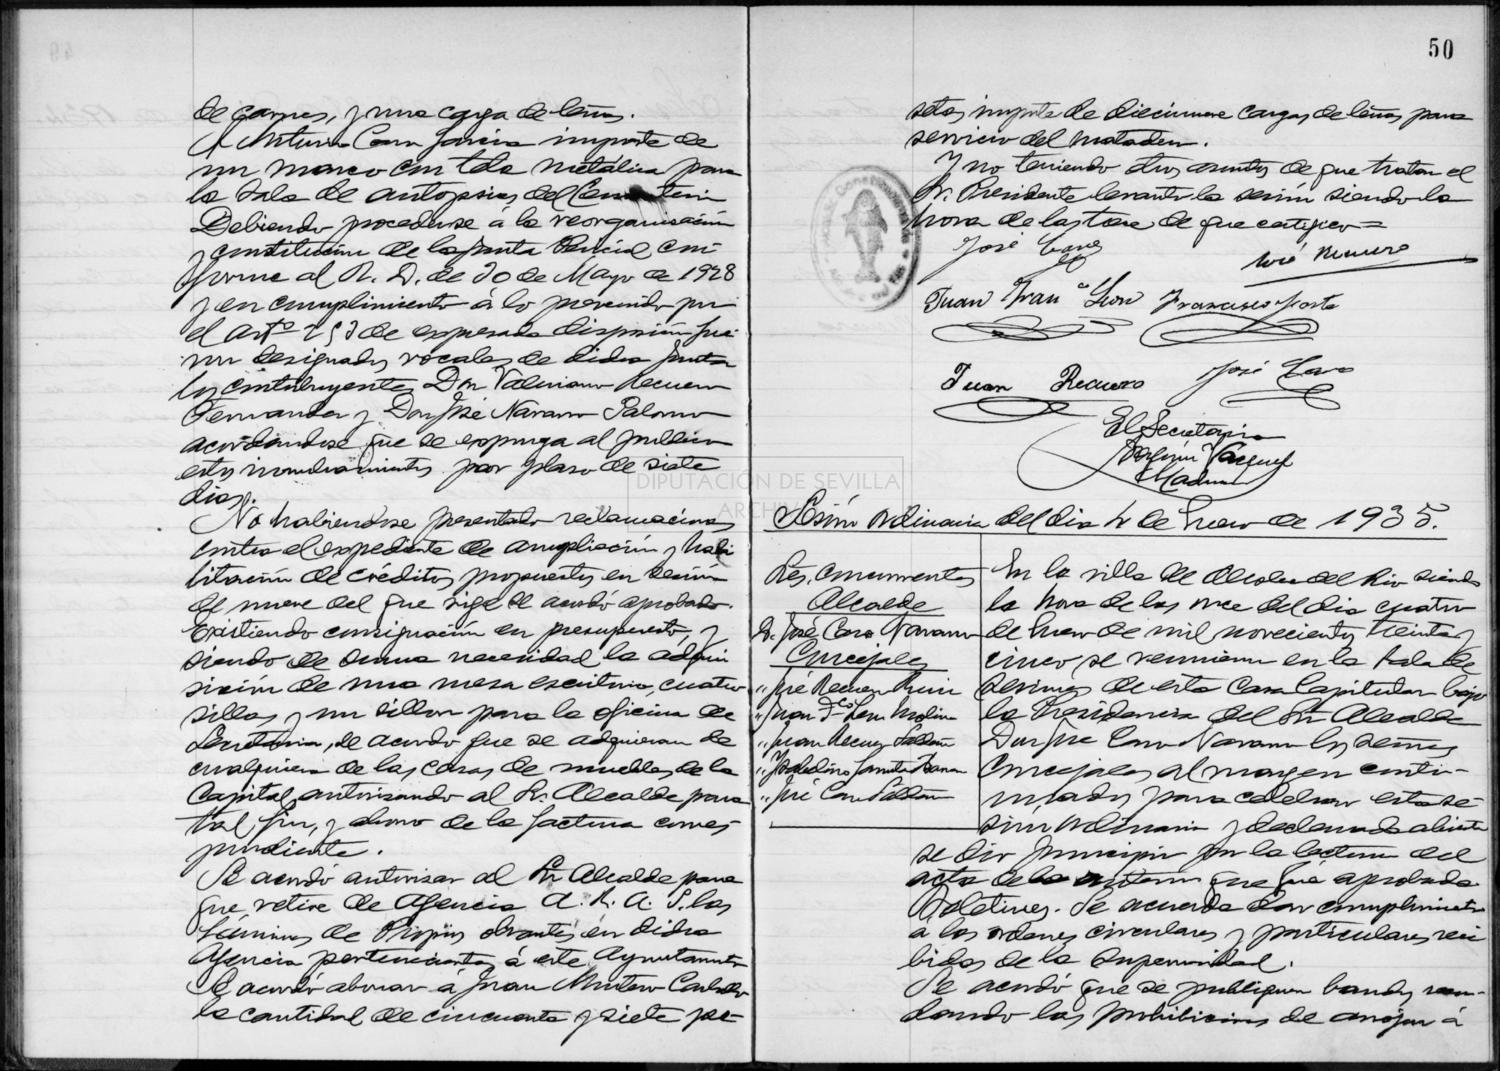 de carnes, y una carga de leñas.
A Arturo Caro García importe de
un marco con tela metálica para
la sala de autopsias del Cementerio
Debiendo procederse á la reorganización
y constitución de la Junta Pericial con-
forme al R. D. de 30 de Mayo de 1928
y en cumplimiento á lo prevenido por
el artº de expresada disposición fue-
ron designados vocales de dicha Junta
los contribuyentes Don Valeriano Recuero
Fernandez y Don José Navarro Palomo
acordandose que se exponga al publico
estos nombramientos por plazo de siete
dias.
No habiendose presentado reclamaciones
contra el expediente de ampliación y habi
litación de créditos propuestos en sesión
de nueve del que rige se acordó aprobado.
Existiendo consignación en presupuesto, y
siendo de suma necesidad la adqui
sición de una mesa escritorio, cuatro
sillas y un sillon para la oficina de
Secretaria, se acordo que se adquieran de
cualquiera de las casas de muebles de la
Capital, autorizando al Sr. Alcalde para
tal fin, y abono de la factura corres-
pondiente.
Se acordó autorizar al Sr Alcalde para
que retire de Agencia A. R. A. S. las
láminas de Propios obrantes en dicha
Agencia pertenecientes á este Ayuntamiento
Se acordó abonar á Juan Montero
la cantidad de cincuenta y siete pe-
50
setas importe de diecinueve cargas de leñas para
servicio del matadero.
Y no teniendo otros asuntos de que tratar el
Sr. Presidente levantó la sesión siendo la
hora de las doce de que certifico=
José Caro
José Recuero
Juan Franco Leon Francisco
Juan Recuero José Caro
El Secretario
Joaquin Vazquez
DIPUTACIÓN DE SEVILLA
ARCHIVO
Sesión ordinaria del dia 4 de Enero de 1935.
Sres. concurrentes
Alcalde
D. José Caro Navarro
Concejales
" José Recuero Ruiz
" Juan Fco Leon Molina
" Juan Recuero Saldaña
" José Caro Saldaña
En la villa de Alcolea del Rio siendo
la hora de las once del dia cuatro
de Enero de mil novecientos treinta y
cinco se reunieron en la Sala de
sesiones de esta Casa Capitular bajo
la Presidencia del Sr Alcalde
Don José Caro Navarro los señores
Concejales al margen conti-
nuados para celebrar esta se-
sión ordinaria y declarada abierta
se dió principio por la lectura del
acta de la anterior que fue aprobada
Boletines. Se acuerda dar cumplimiento
a las ordenes circulares y particulares reci
bidas de la Superioridad.
Se acordó que se publiquen bandos recor-
dando las prohibiciones de arrojar á